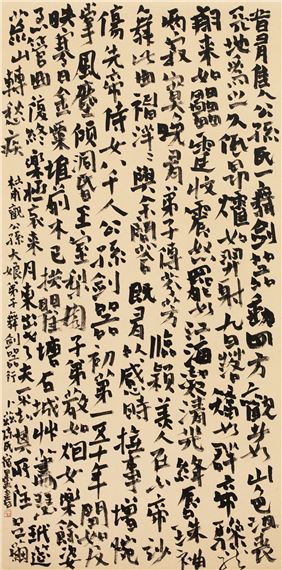 昔有佳人公孫氏一舞劍器動四方觀者如山色沮喪
天地為之久低昂㸌如羿射九日落矯如群帝驂龍
翔來如雷霆收震怒罷如江海凝清光絳唇珠袖
兩寂寞晚有弟子傳芬芳臨潁美人在白帝妙
舞此曲神揚揚與余問答既有以感時撫事增惋
傷先帝侍女八千人公孫劍器初第一五十年間似反
掌風塵澒洞昏王室梨園子弟散如煙女樂餘姿
映寒日金粟堆前木已拱瞿塘石城草蕭瑟玳筵
急管曲復終樂極哀來月東出老夫不知其所往足繭
荒山轉愁疾 杜甫觀公孫大娘弟子舞劍器行